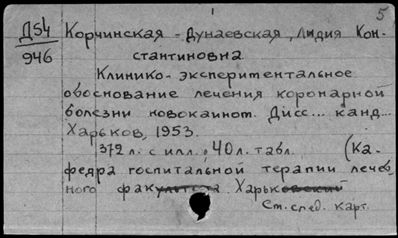 5
Д54 Корчинская - Дунаевская, Лидия Кон-
946 стантиновна
Клинико-эксперитентальное
обоснование лечения коронарной
болезни новокаинот. Дисс... канд...
Харьков, 1953.
372 л. с илл.; 40 л. табл. (Ка-
федра госпитальной терапии лечеб-
ного факультета Харьковский
См. след. карт.